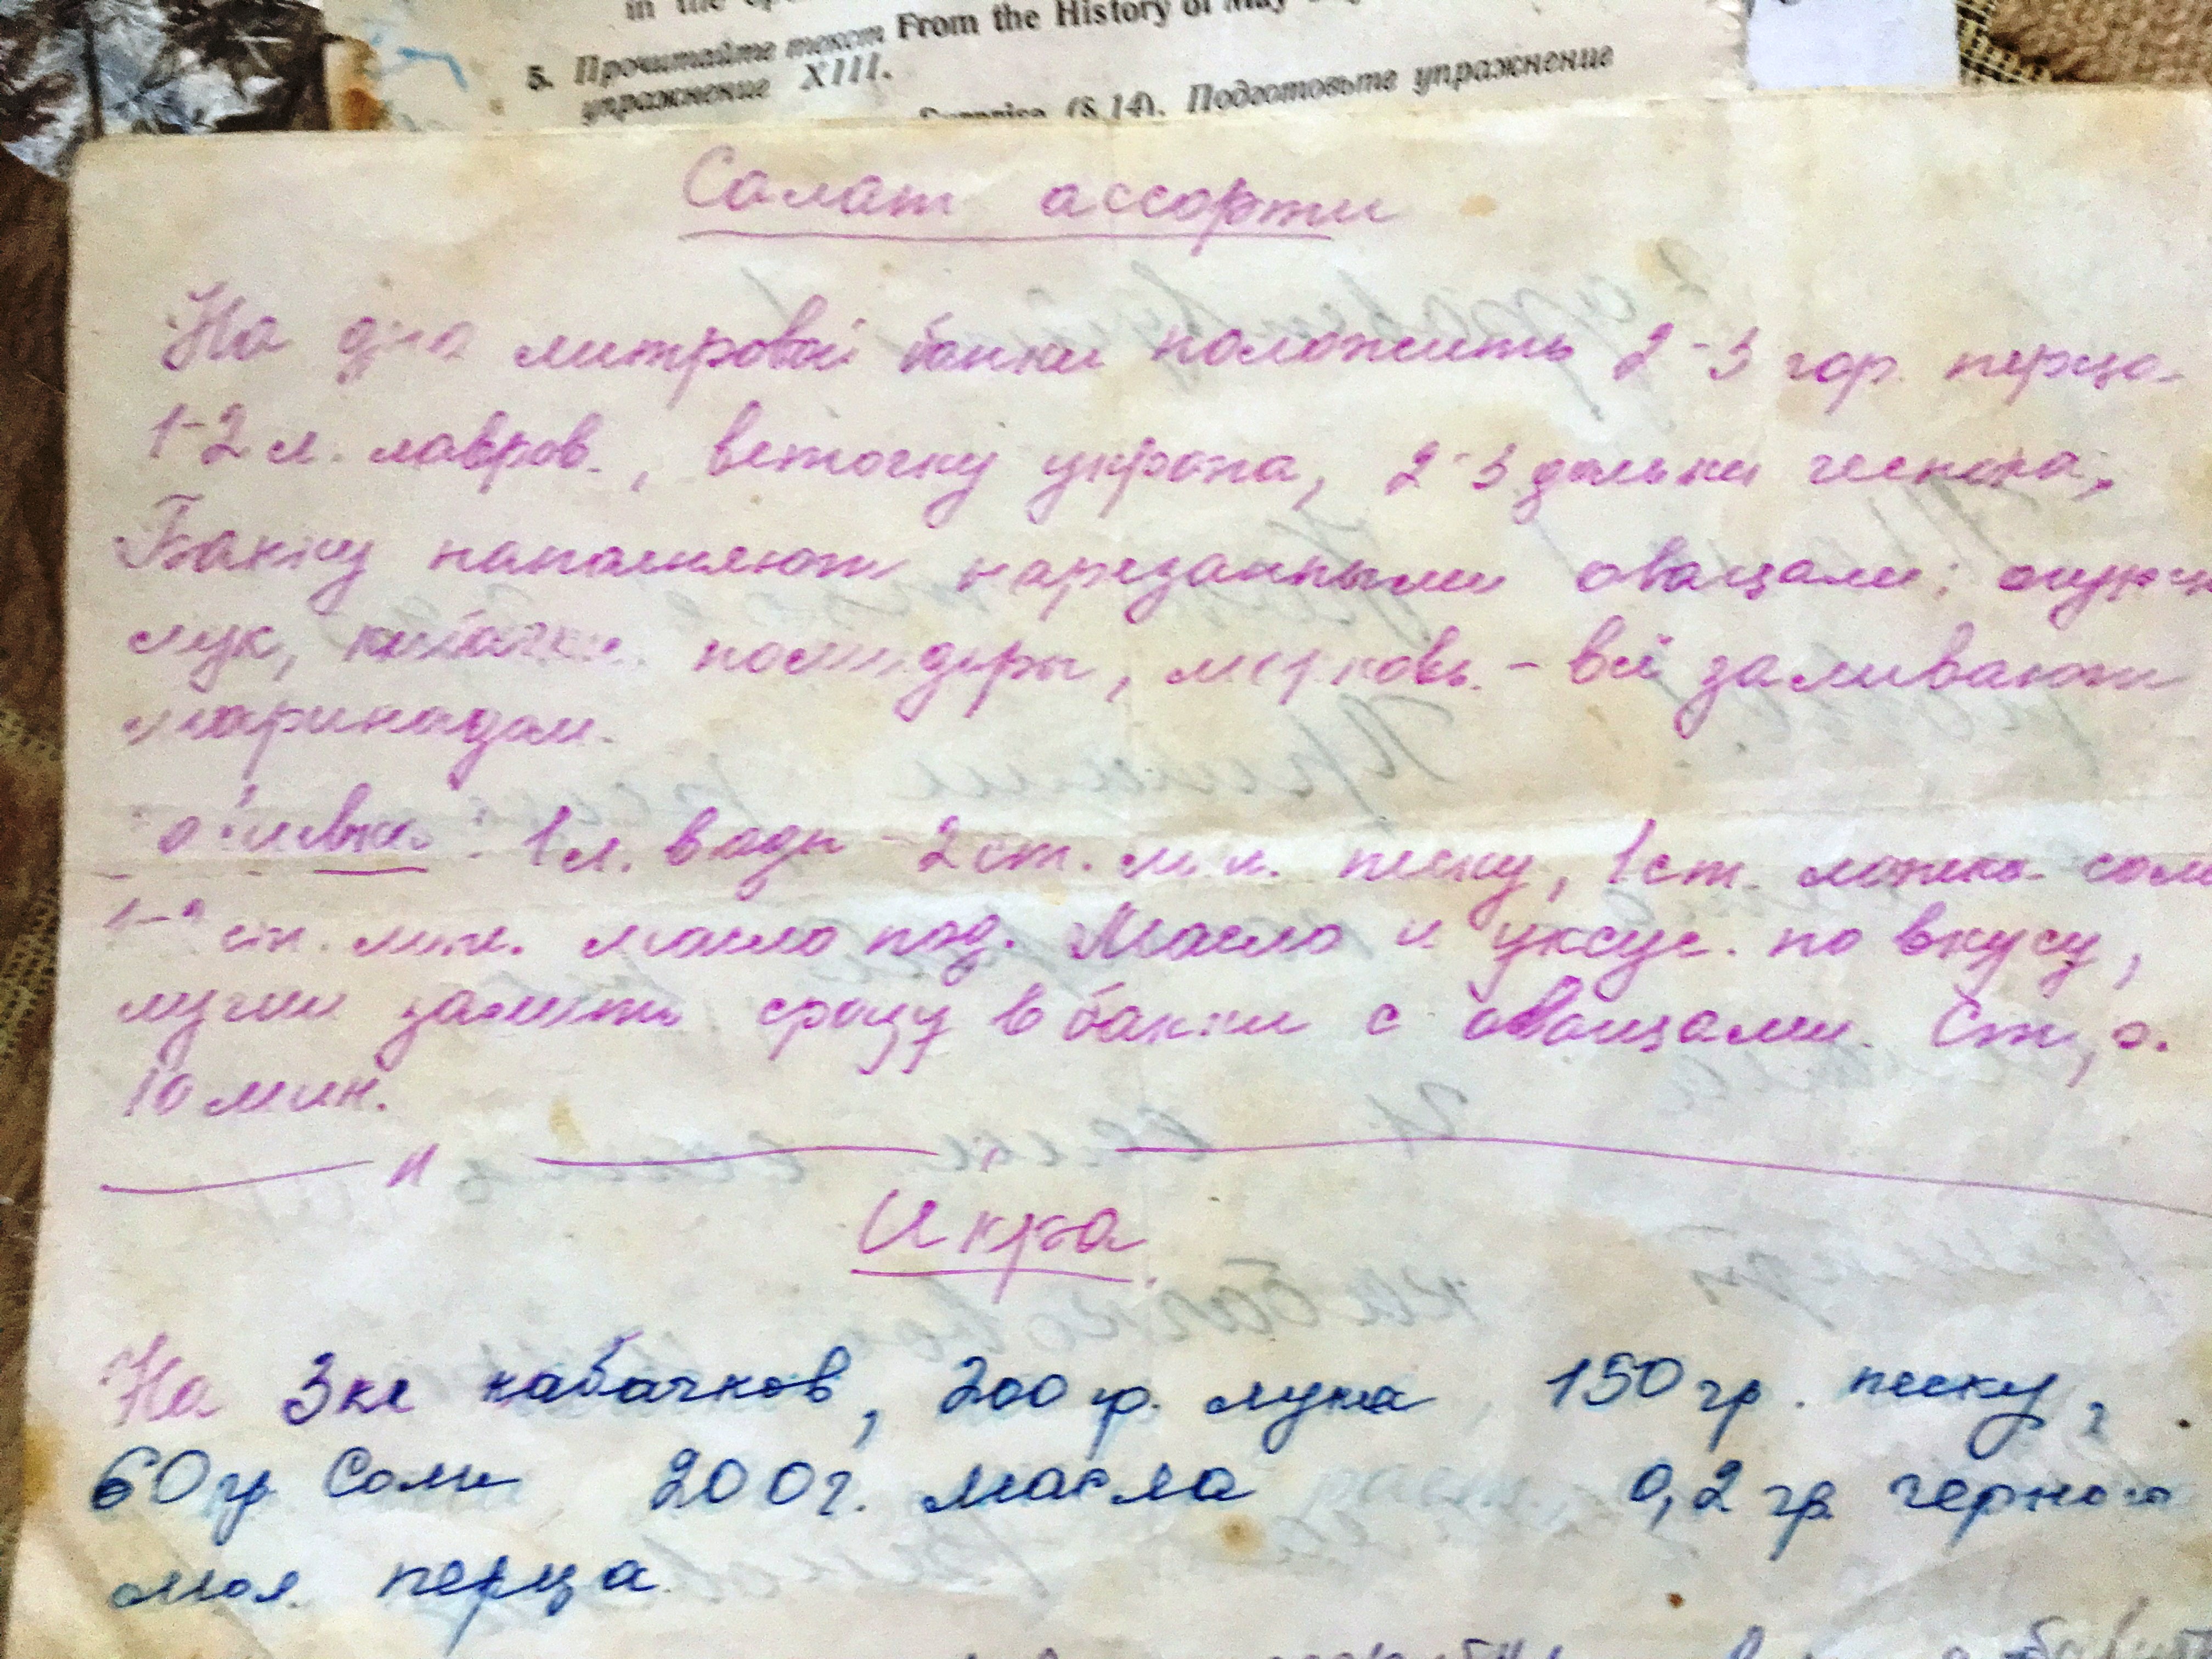 From the History of May
5. Прочитайте текст
упражнение XIII.
(§ 14). Подготовьте упражнение
Салат ассорти
На дно литровой банки положить 2-3 гор. перца
1-2 л. лавров., веточку укропа, 2-3 дольки чеснока,
Банку наполняют нарезанными овощами: огурцы
лук, кабачки. помидоры, морковь. - всё заливают
маринадом.
: 1 л. воды - 2 ст. песку, 1 ст. ложка соли
ст. масла под. Масло и уксус. по вкусу,
лучше залить сразу в банки с овощами.
10 мин.
Икра
На 3 кг кабачков, 200 гр. лука, 150 гр. песку,
60 гр соли 200 г. масла раст. 0,2 гр черного
мол. перца.